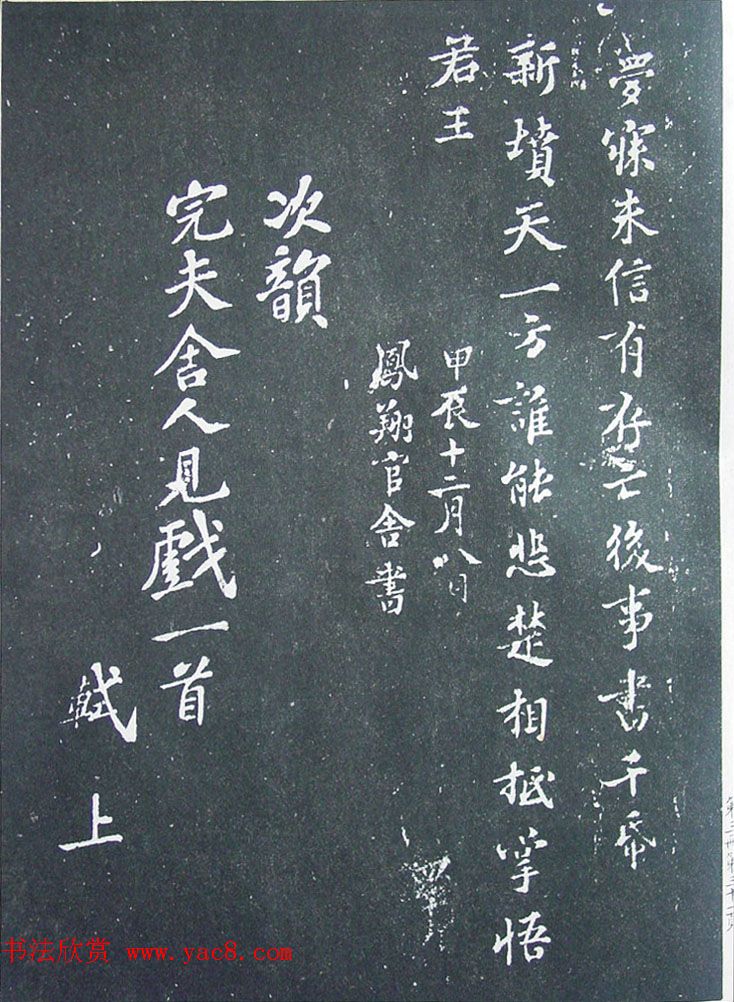 夢寐未信有存亡後事書千帋
新墳天一方誰能悲楚相抵掌悟
君王
甲辰十二月八日
鳳翔官舍書
次韻
完夫舍人見戲一首
軾 上
书法欣赏 www.yac8.com